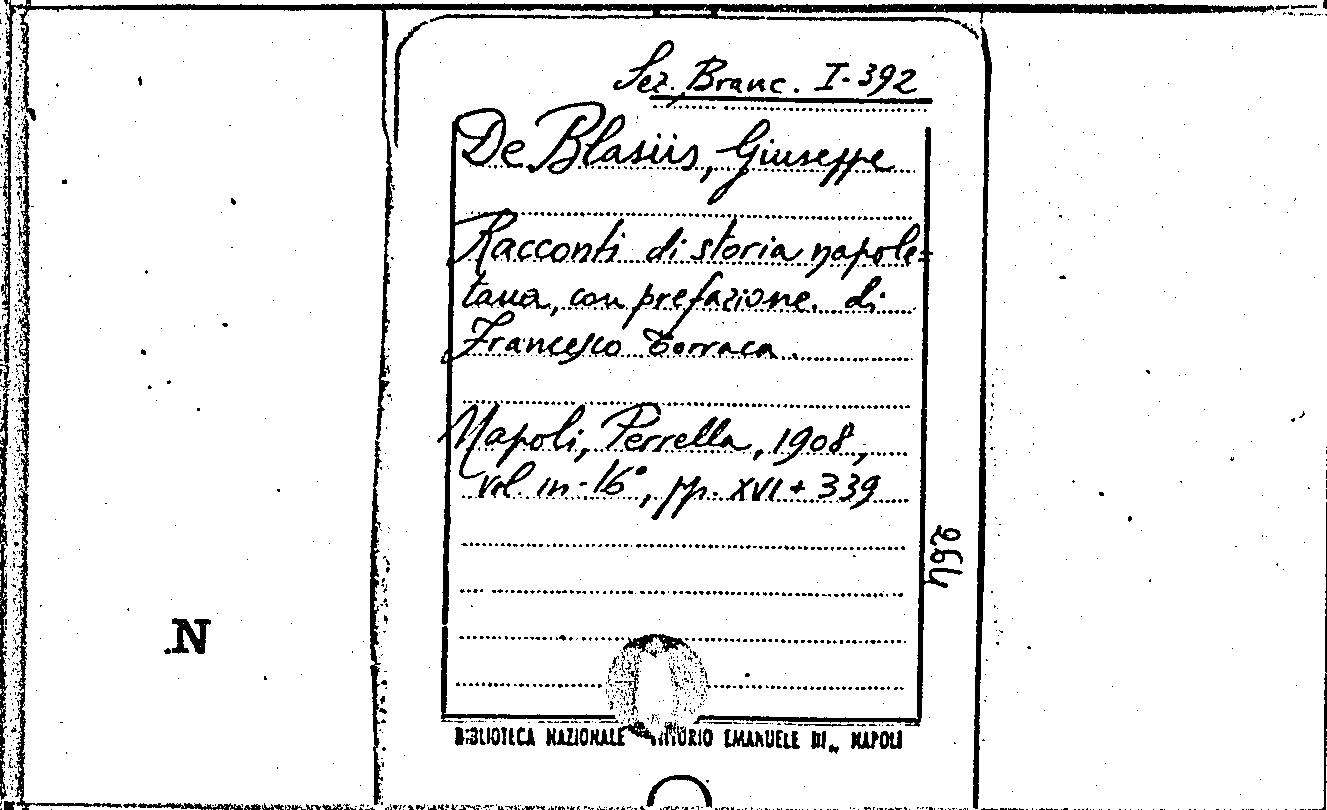 Sez. Branc. I-392
De Blasiis, Giuseppe
Racconti di storia napole=
tana, con prefazione di
Francesco Torraca.
Napoli, Perrella, 1908,
vol. in-16°, pp. XVI + 339
264
N
BIBLIOTECA NAZIONALE VITTORIO EMANUELE III„ NAPOLI